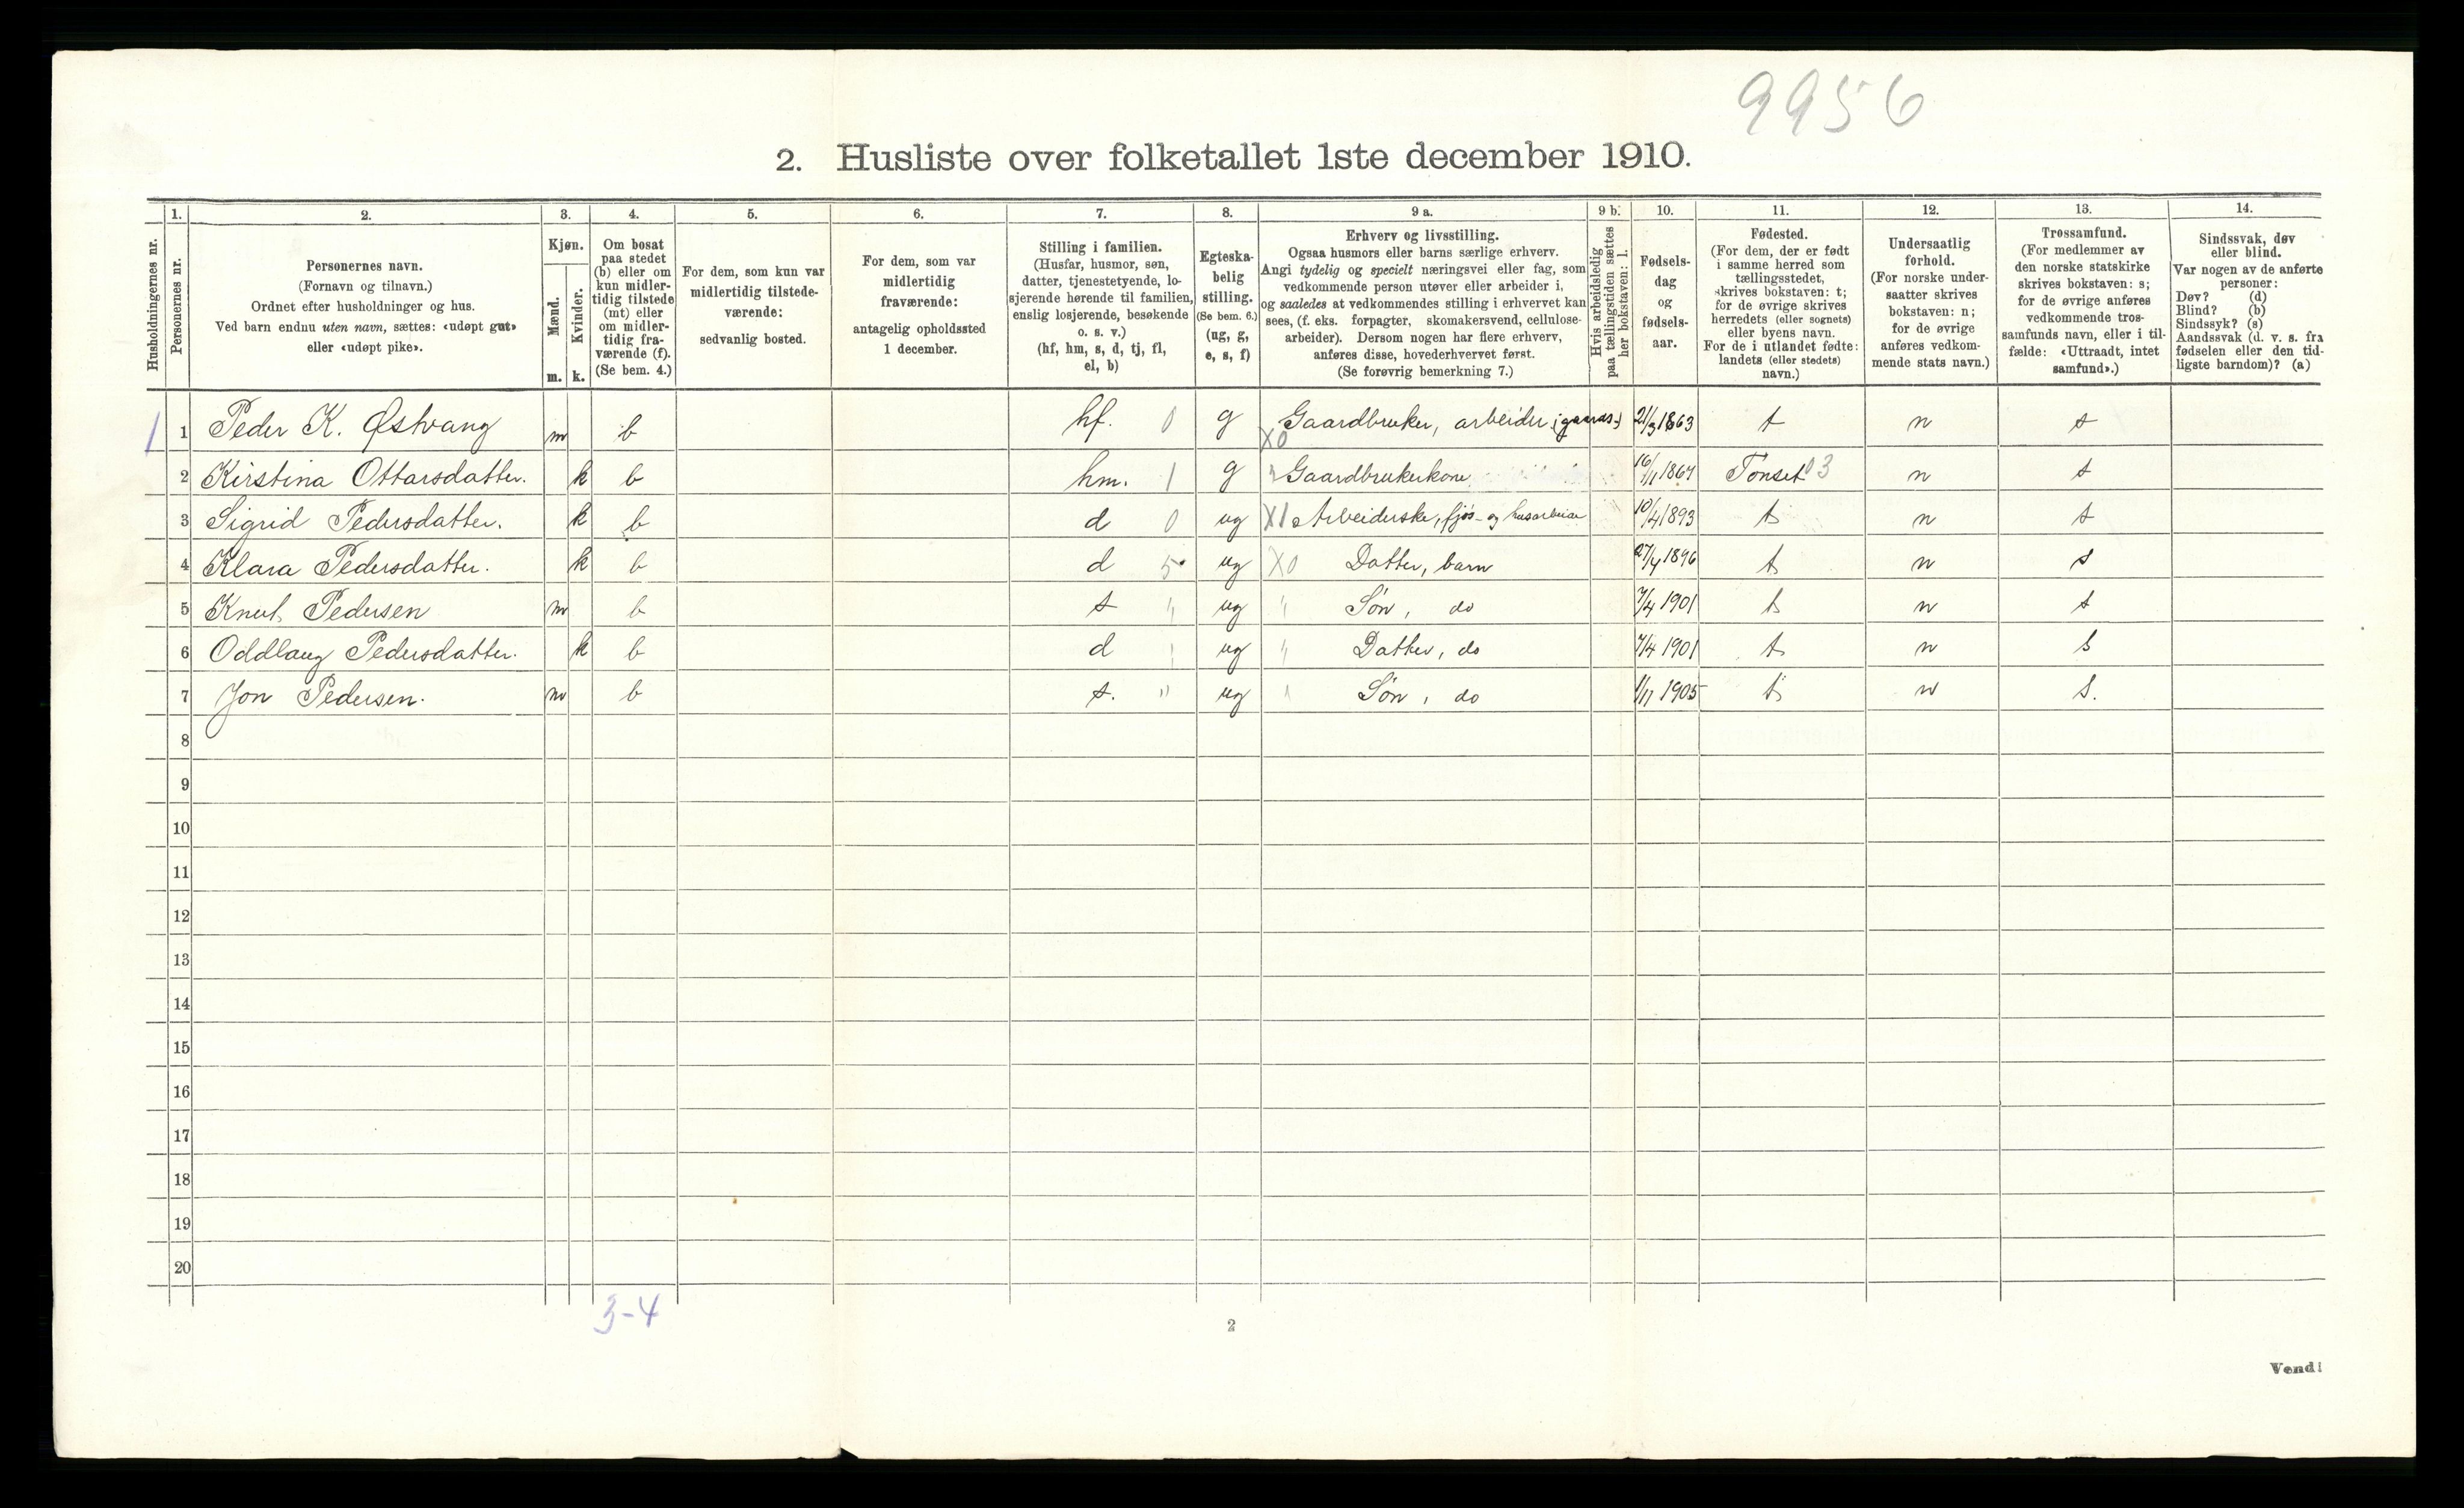 9956
2. Husliste over folketallet 1ste december 1910.
Husholdningernes nr.
1. Personernes nr.
2. Personernes navn.
(Fornavn og tilnavn.)
Ordnet efter husholdninger og hus.
Ved barn endnu uten navn, sættes: «udøpt gut»
eller «udøpt pike».
3. Kjøn.
Mænd. m.
Kvinder. k.
4. Om bosat
paa stedet
(b) eller om
kun midler-
tidig tilstede
(mt) eller
om midler-
tidig fra-
værende (f).
(Se bem. 4.)
5. For dem, som kun var
midlertidig tilstede-
værende:
sedvanlig bosted.
6. For dem, som var
midlertidig
fraværende:
antagelig opholdssted
1 december.
7. Stilling i familien.
(Husfar, husmor, søn,
datter, tjenestetyende, lo-
sjerende hørende til familien,
enslig losjerende, besøkende
o. s. v.)
(hf, hm, s, d, tj, fl,
el, b)
8. Egteska-
belig
stilling.
(Se bem. 6.)
(ug, g,
e, s, f)
9 a. Erhverv og livsstilling.
Ogsaa husmors eller barns særlige erhverv.
Angi tydelig og specielt næringsvei eller fag, som
vedkommende person utøver eller arbeider i,
og saaledes at vedkommendes stilling i erhvervet kan
sees, (f. eks. forpagter, skomakersvend, cellulose-
arbeider). Dersom nogen har flere erhverv,
anføres disse, hovederhvervet først.
(Se forøvrig bemerkning 7.)
9 b. Hvis arbeidsledig
paa tællingstiden sættes
her bokstaven: l.
10. Fødsels-
dag
og
fødsels-
aar.
11. Fødested.
(For dem, der er født
i samme herred som
tællingsstedet,
skrives bokstaven: t;
for de øvrige skrives
herredets (eller sognets)
eller byens navn.
For de i utlandet fødte:
landets (eller stedets)
navn.)
12. Undersaatlig
forhold.
(For norske under-
saatter skrives
bokstaven: n;
for de øvrige
anføres vedkom-
mende stats navn.)
13. Trossamfund.
(For medlemmer av
den norske statskirke
skrives bokstaven: s;
for de øvrige anføres
vedkommende tros-
samfunds navn, eller i til-
fælde: «Uttraadt, intet
samfund».)
14. Sindssvak, døv
eller blind.
Var nogen av de anførte
personer:
Døv? (d)
Blind? (b)
Sindssyk? (s)
Aandssvak (d. v. s. fra
fødselen eller den tid-
ligste barndom)? (a)
1 1 Peder K. Østvang m b hf. 0 g X0 Gaardbruker, arbeider 21/3 1863 t n s
2 Kirstina Ottarsdatter. k b hm. 1 g Gaardbrukerkone 16/11 1867 Tönset 03 n s
3 Sigrid Pedersdatter. k b d 0 ug X1 Arbeiderske, fjøs- og husarbeide 10/4 1893 t n s
4 Klara Pedersdatter. k b d 5 ug X0 Datter, barn 27/4 1896 t n s
5 Knut Pedersen m b s " ug " Søn, do 7/4 1901 t n s
6 Oddlaug Pedersdatter. k b d " ug " Datter, do 7/4 1901 t n s
7 Jon Pedersen. m b s. " ug " Søn, do 1/11 1905 t n s.
8
9
10
11
12
13
14
15
16
17
18
19
20
3-4
2
Vend!